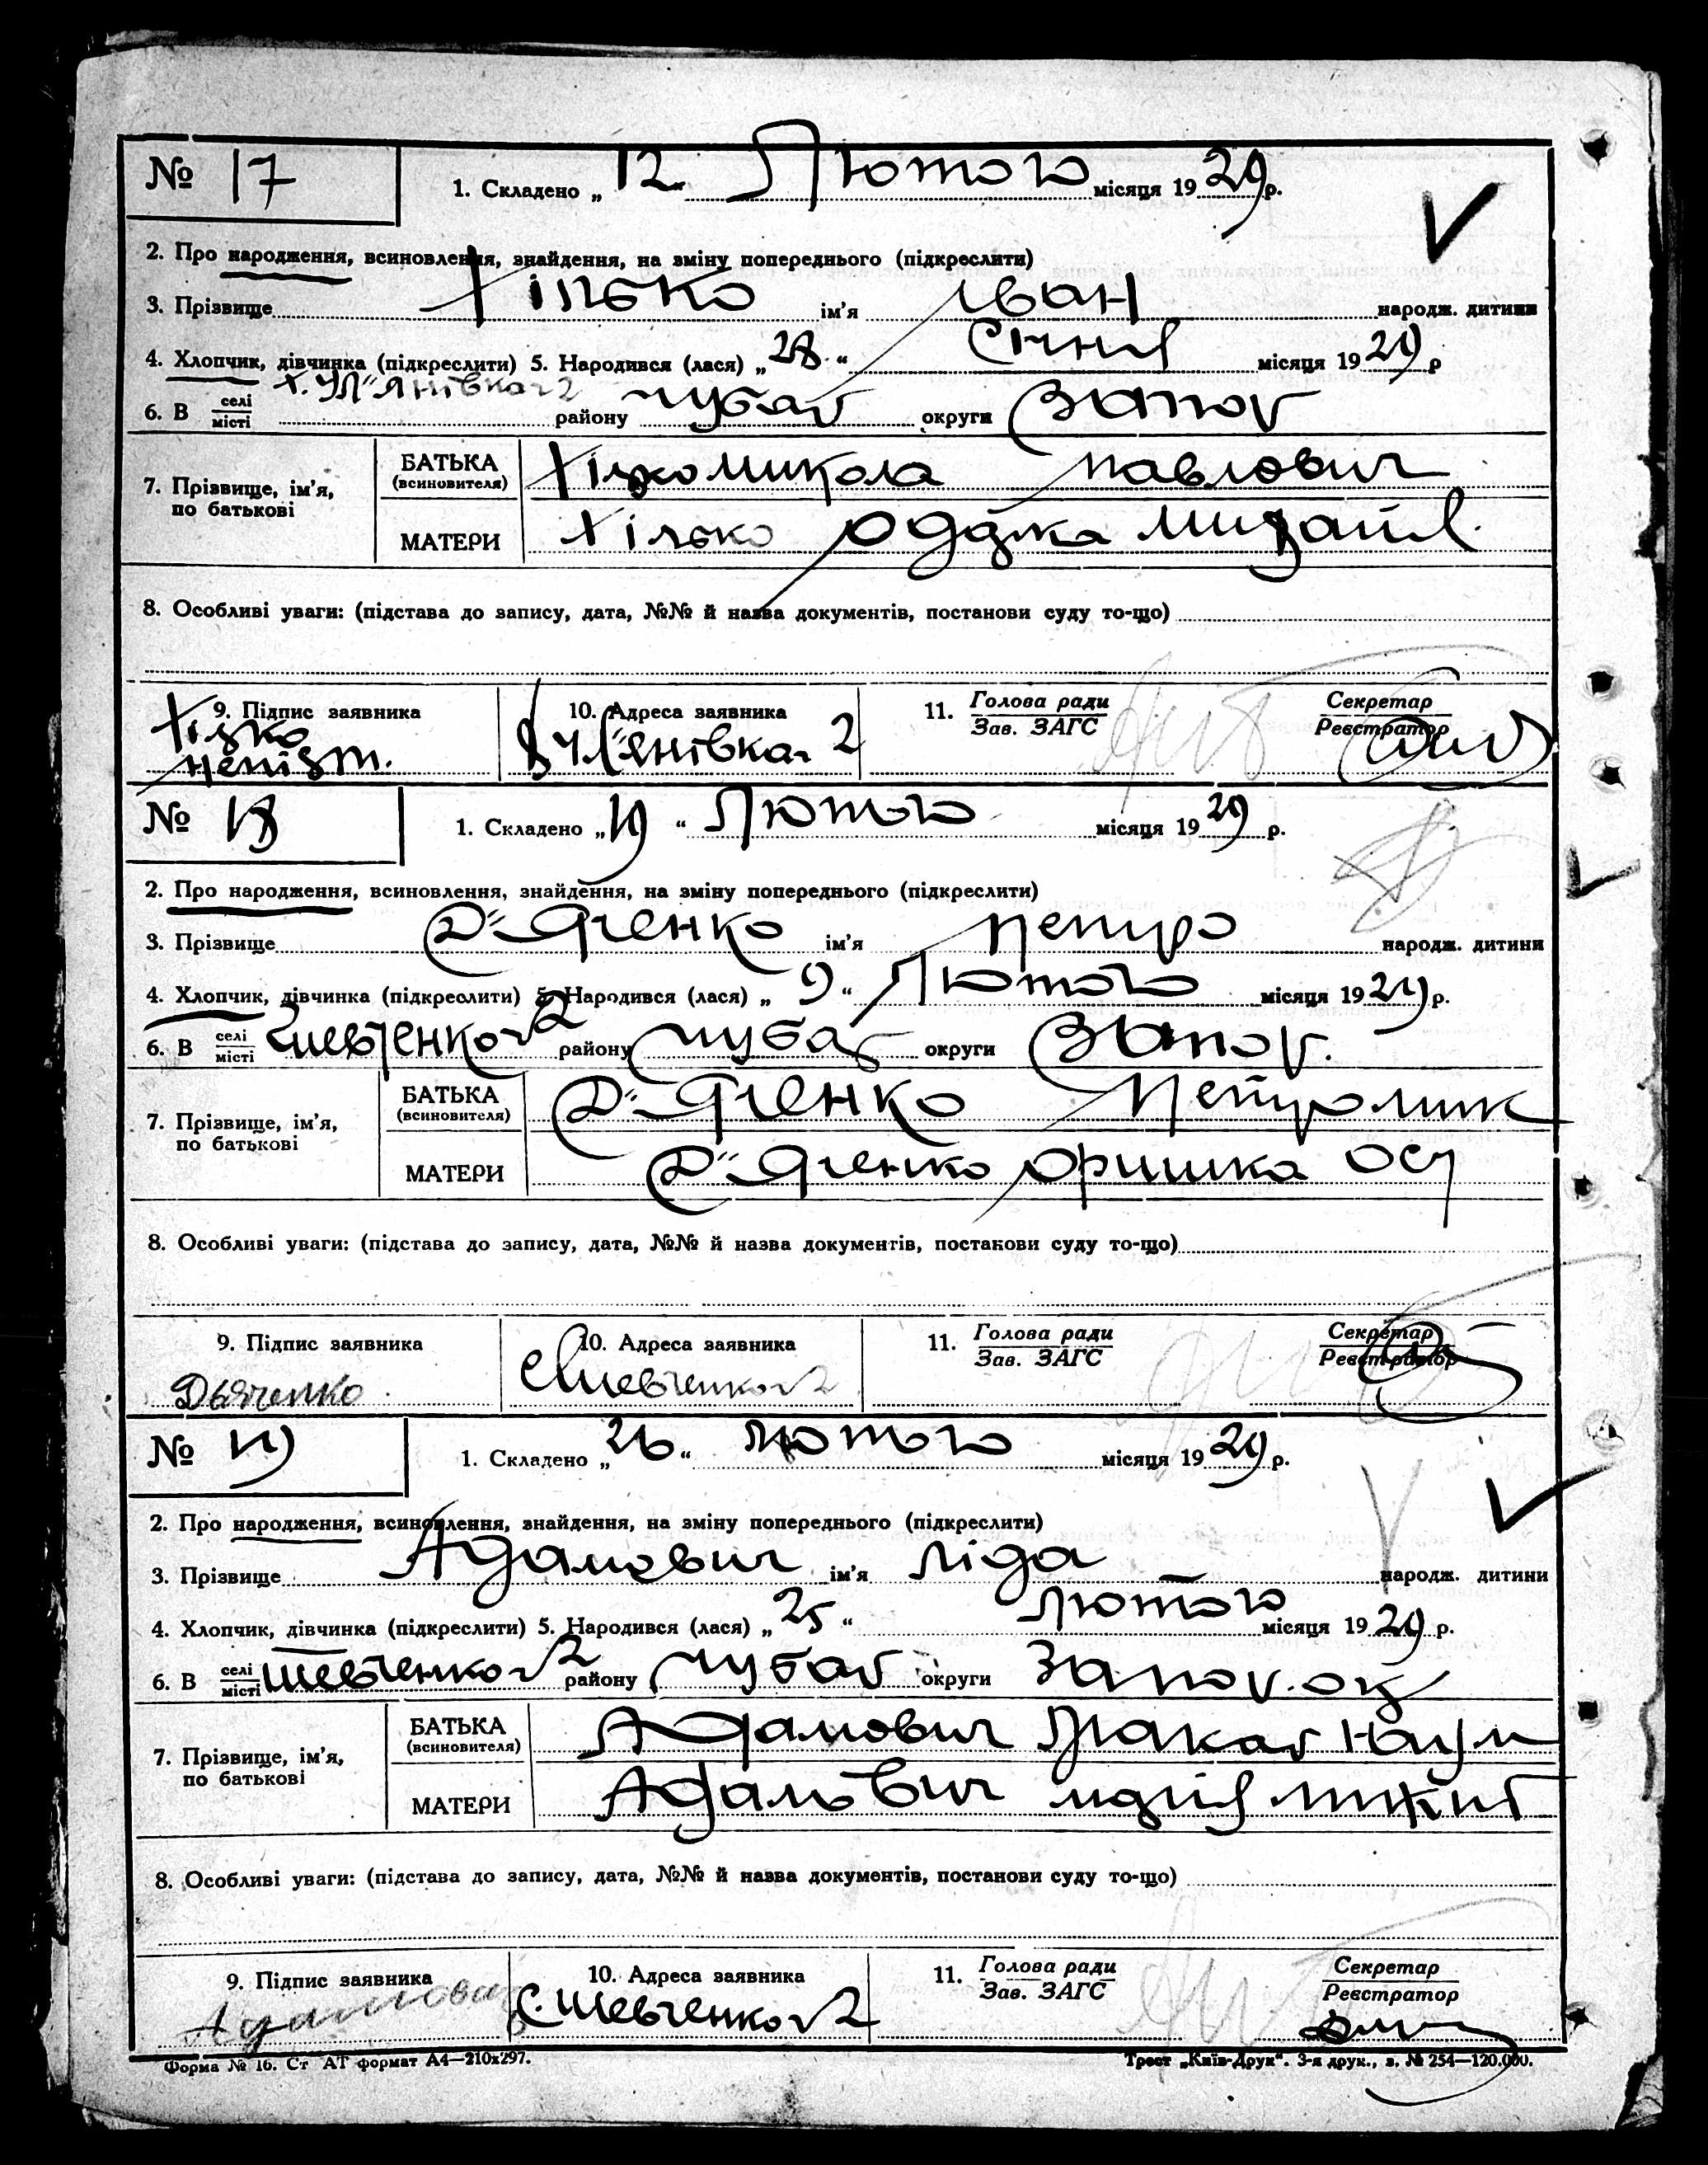 № 17 1. Складено „12“ Лютого місяця 1929 р.
2. Про народження, всиновлення, знайдення, на зміну попереднього (підкреслити)
3. Прізвище Хілько ім’я Іван народж. дитини
4. Хлопчик, дівчинка (підкреслити) 5. Народився (лася) „28“ Січня місяця 1929 р
6. В селі місті х. Ул"янівка 2 району Чубар округи Запор
7. Прізвище, ім’я, по батькові
БАТЬКА (всиновителя) Хілько Микола Павлович
МАТЕРИ Хілько Михайл.
8. Особливі уваги: (підстава до запису, дата, №№ й назва документів, постанови суду то-що)
9. Підпис заявника 10. Адреса заявника 11. Голова ради Зав. ЗАГС Секретар Реєстратор
Хілько непісм. Ул"янівка 2
№ 18 1. Складено „19“ Лютого місяця 1929 р.
2. Про народження, всиновлення, знайдення, на зміну попереднього (підкреслити)
3. Прізвище Д"яченко ім’я Петро народж. дитини
4. Хлопчик, дівчинка (підкреслити) 5. Народився (лася) „9“ Лютого місяця 1929 р.
6. В селі місті Шевченко 2 району Чубар округи Запор.
7. Прізвище, ім’я, по батькові
БАТЬКА (всиновителя) Д"яченко Петро Мик
МАТЕРИ Д"яченко Оришка Ос
8. Особливі уваги: (підстава до запису, дата, №№ й назва документів, постанови суду то-що)
9. Підпис заявника 10. Адреса заявника 11. Голова ради Зав. ЗАГС Секретар Реєстратор
Дьяченко С Шевченко 2
№ 19 1. Складено „26“ лютого місяця 1929 р.
2. Про народження, всиновлення, знайдення, на зміну попереднього (підкреслити)
3. Прізвище Адамович ім’я Ліда народж. дитини
4. Хлопчик, дівчинка (підкреслити) 5. Народився (лася) „25“ лютого місяця 1929 р.
6. В селі місті Шевченко 2 району Чубар округи Запор. ок
7. Прізвище, ім’я, по батькові
БАТЬКА (всиновителя) Адамович Макар Наум
МАТЕРИ Адамович
8. Особливі уваги: (підстава до запису, дата, №№ й назва документів, постанови суду то-що)
9. Підпис заявника 10. Адреса заявника 11. Голова ради Зав. ЗАГС Секретар Реєстратор
Адамович С. Шевченко 2
Форма № 16. Ст АТ формат А4—210х297. Трест „Київ-Друк“. 3-я друк., з. № 254—120.000.